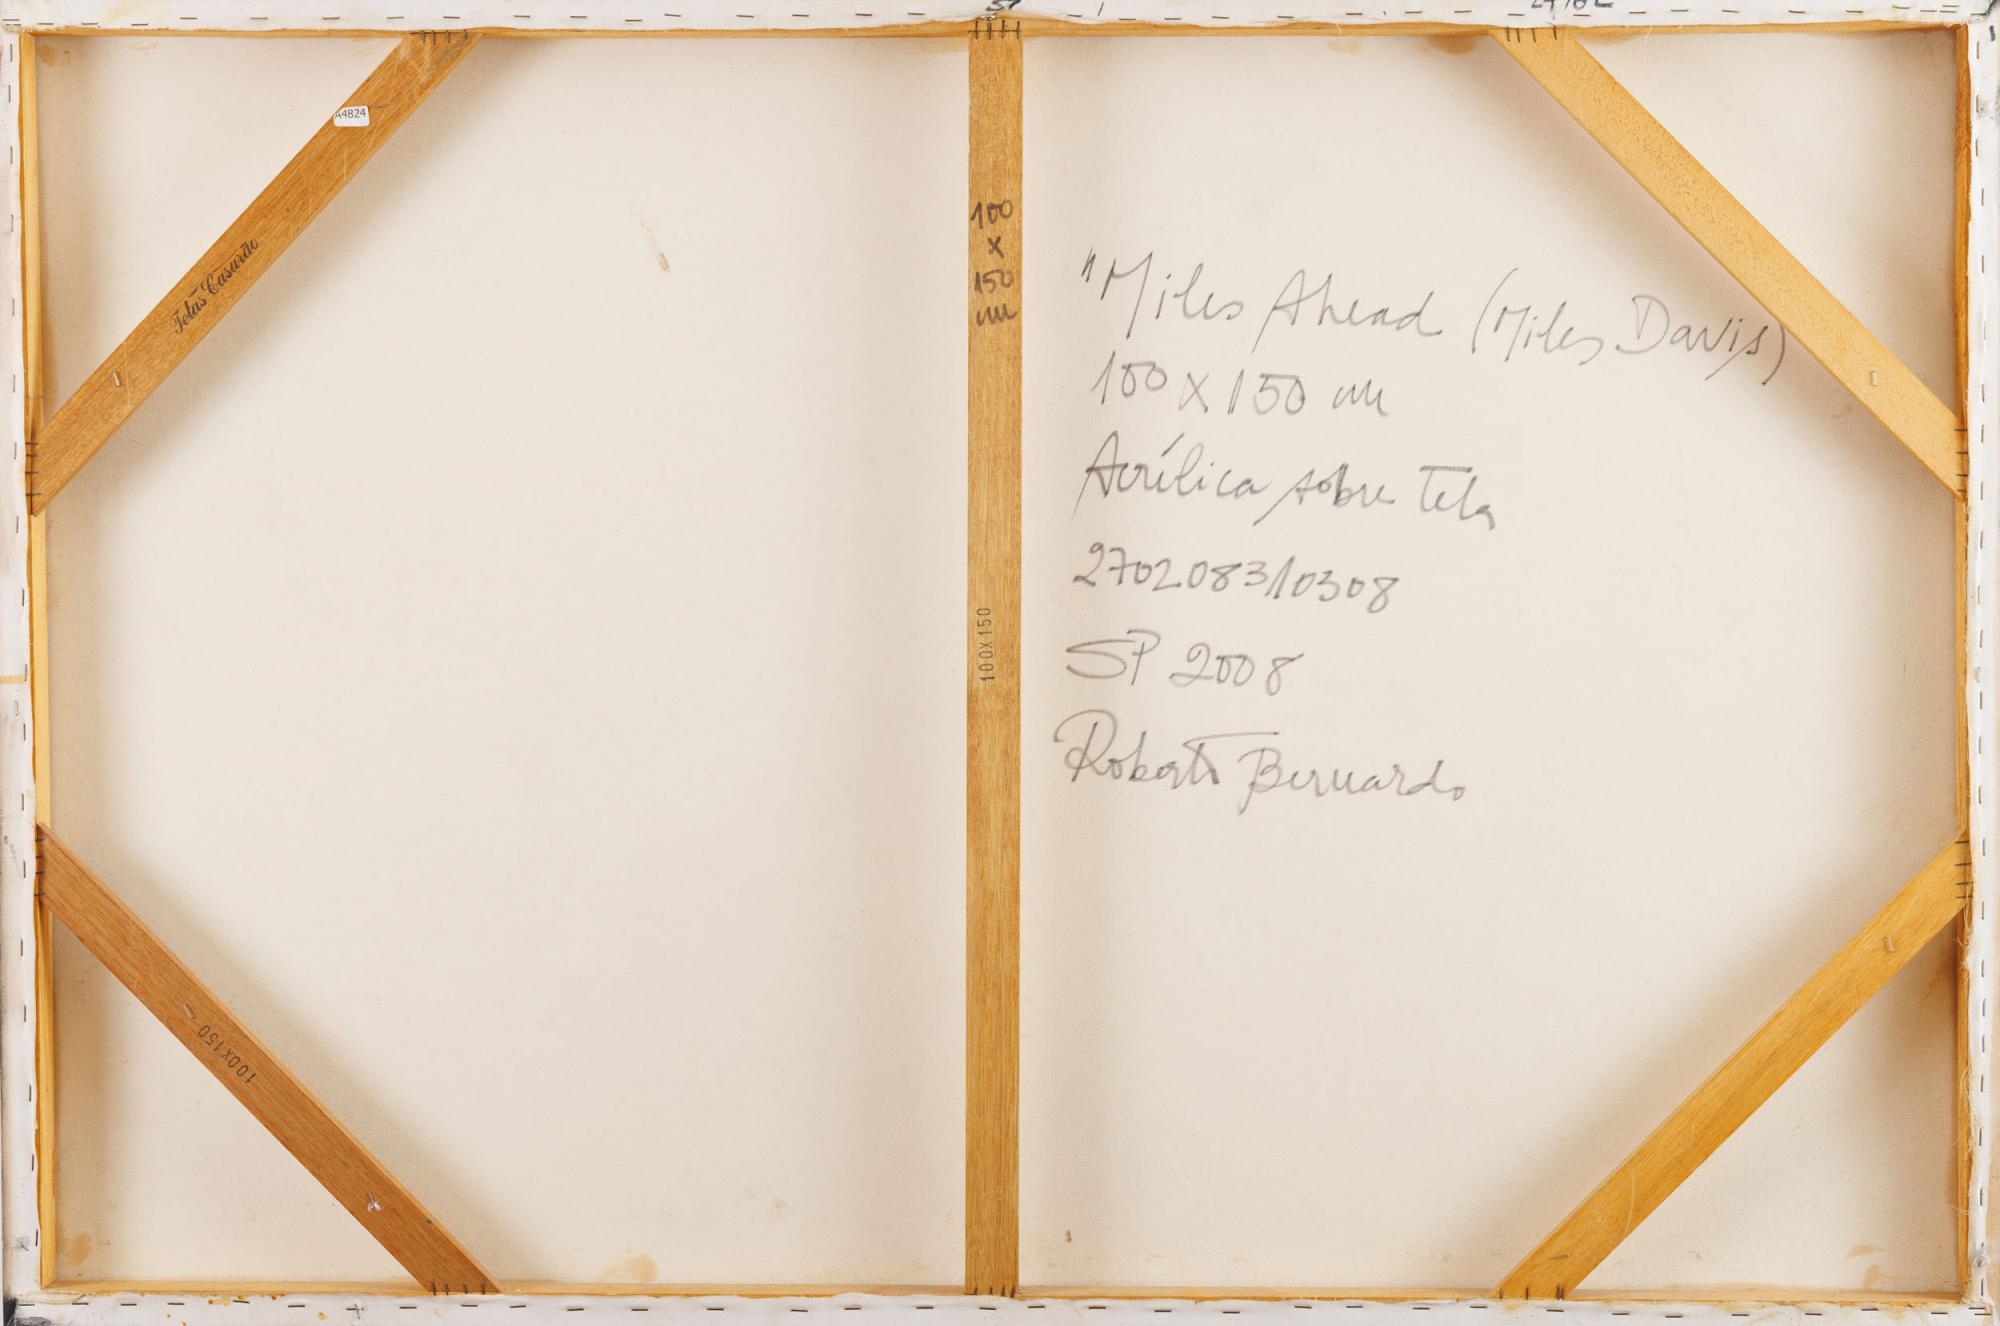 A4824
Telas Casarão
100
x
150
cm
"Miles Ahead (Miles Davis)
100 x 150 cm
Acrílica sobre Tela
270208310308
SP 2008
Roberto Bernardo
100X150
100X150